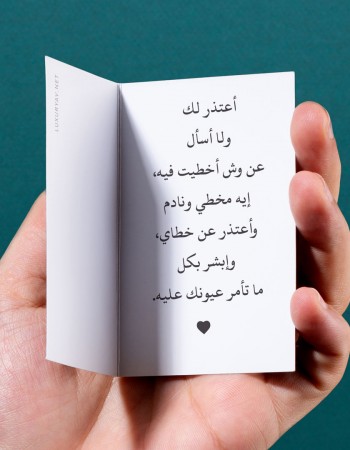 أعتذر لك
ولا أسأل
عن وش أخطيت فيه،
إيه مخطي ونادم
وأعتذر عن خطاي،
وإبشر بكل
ما تأمر عيونك عليه.
LUXURYBY.NET